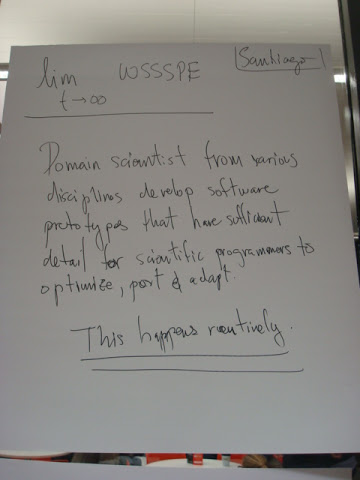 lim WSSSPE Santiago
t→∞
Domain scientist from various
disciplines develop software
prototypes that have sufficient
detail for scientific programmers to
optimize, port & adapt.
This happens routinely.